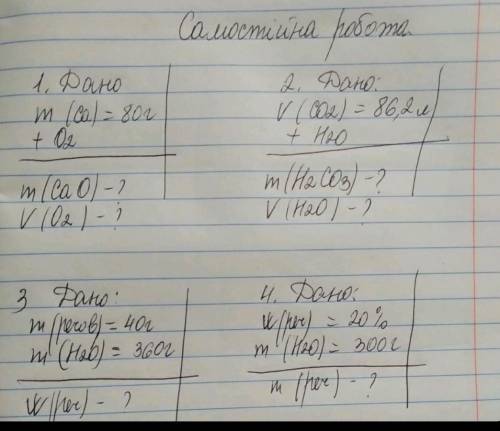 Самостійна робота.
1. Дано
m (Ca) = 80г
+ O2
m (CaO) - ?
V (O2) - ?
2. Дано:
V (CO2) = 86,2л
+ H2O
m (H2CO3) - ?
V (H2O) - ?
3 Дано:
m (речов) = 40г
m (H2O) = 360г
W (реч) - ?
4. Дано:
W (реч) = 20%
m (H2O) = 300г
m (реч) - ?